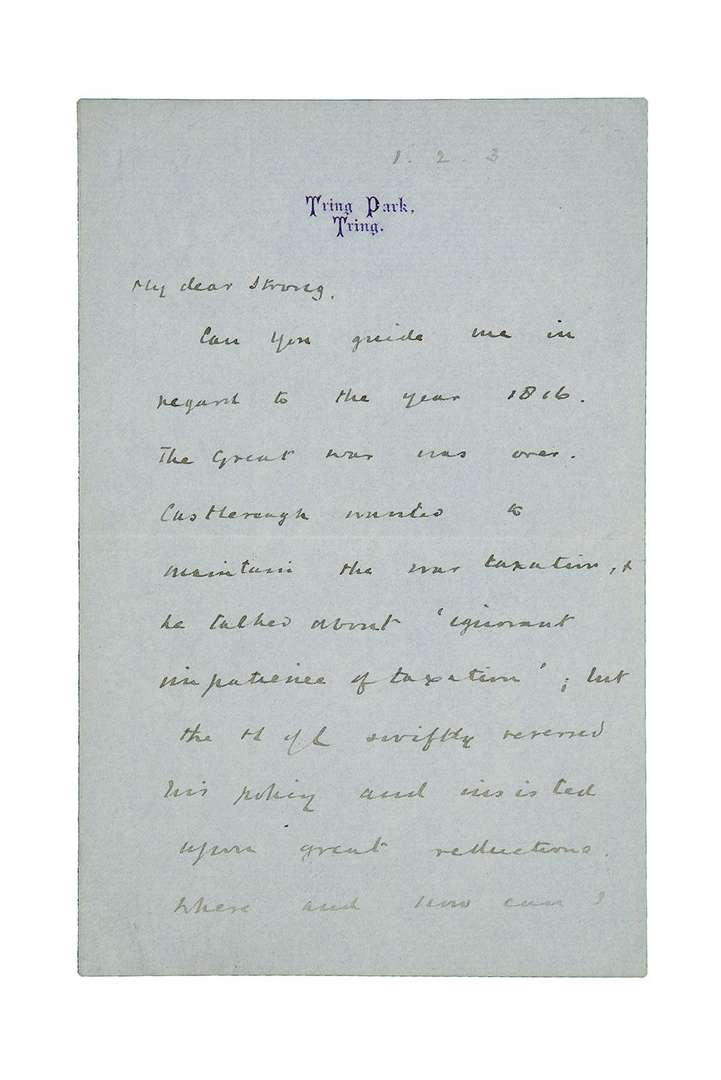 1. 2. 3
Tring Park,
Tring.
My dear Strong,
Can you guide me in
regard to the year 1816.
The Great war was over.
Castlereagh wanted to
maintain the war taxation, &
he talked about 'ignorant
impatience of taxation'; but
the H of C swiftly reversed
his policy and insisted
upon great reductions.
Where and how can I